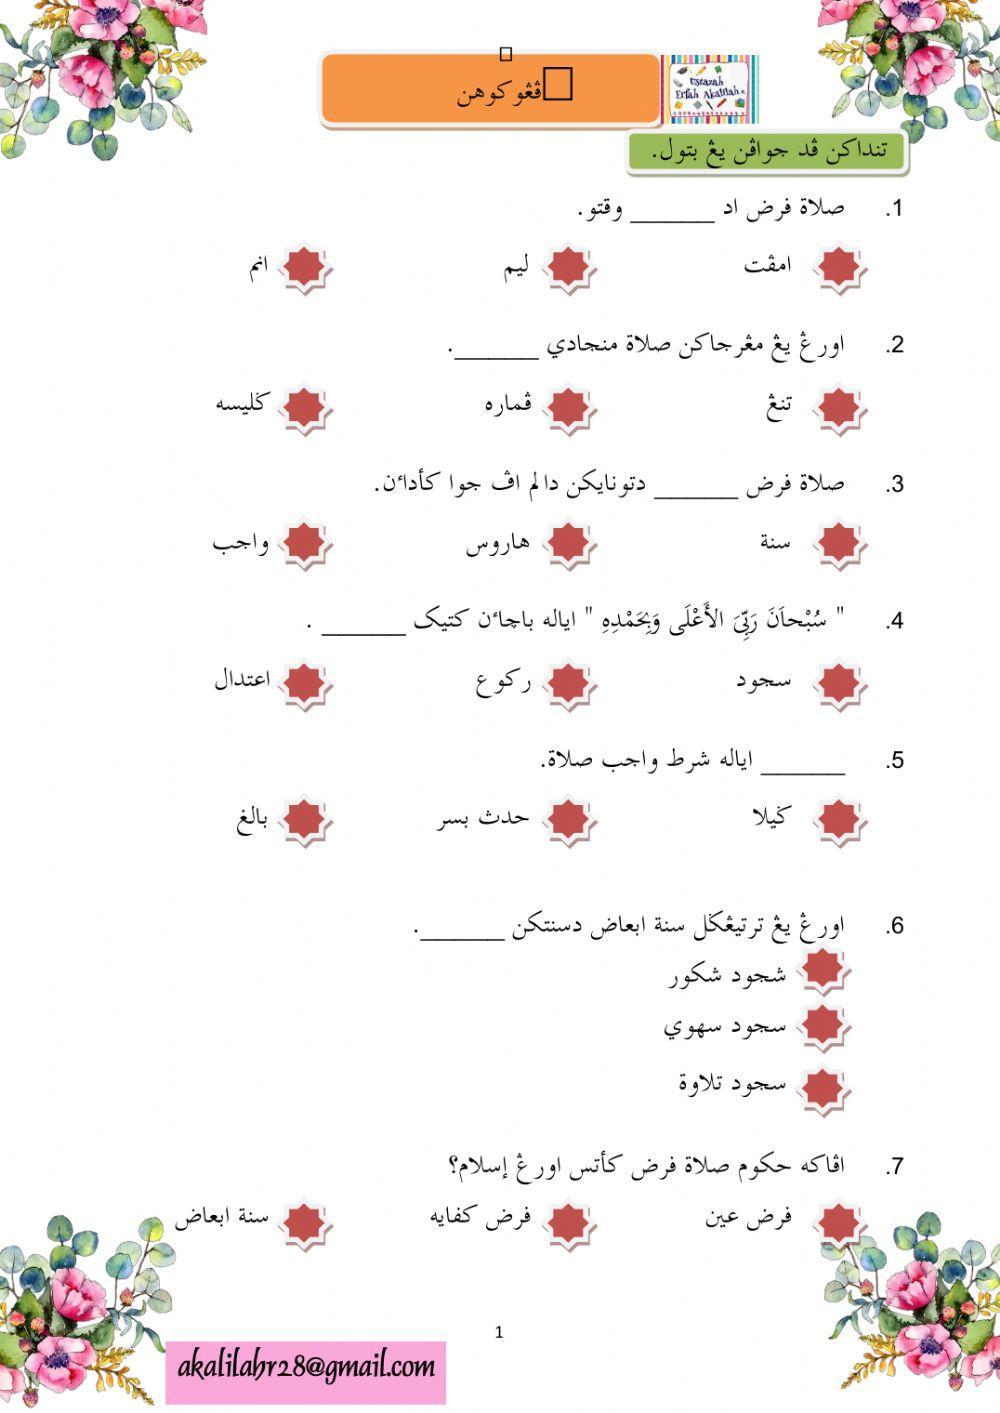 ڤڠوكوهن
Ustazah
Erfah Akalilah
تنداكن ڤد جواڤن يڠ بتول.
1. صلاة فرض اد ______ وقتو.
امڤت ليم انم
2. اورڠ يڠ مڠرجاكن صلاة منجادي ______.
تنڠ ڤماره ݢليسه
3. صلاة فرض ______ دتونايكن دالم اڤ جوا كأداءن.
سنة هاروس واجب
4. " سُبْحاَنَ رَبِّىَ الأَعْلَى وَبِحَمْدِهِ " اياله باچاءن كتيک ______ .
سجود ركوع اعتدال
5. ______ اياله شرط واجب صلاة.
ݢيلا حدث بسر بالغ
6. اورڠ يڠ ترتيڠݢل سنة ابعاض دسنتكن ______.
شجود شكور
سجود سهوي
سجود تلاوة
7. اڤاكه حكوم صلاة فرض كأتس اورڠ إسلام؟
فرض عين فرض كفايه سنة ابعاض
1
akalilahr28@gmail.com